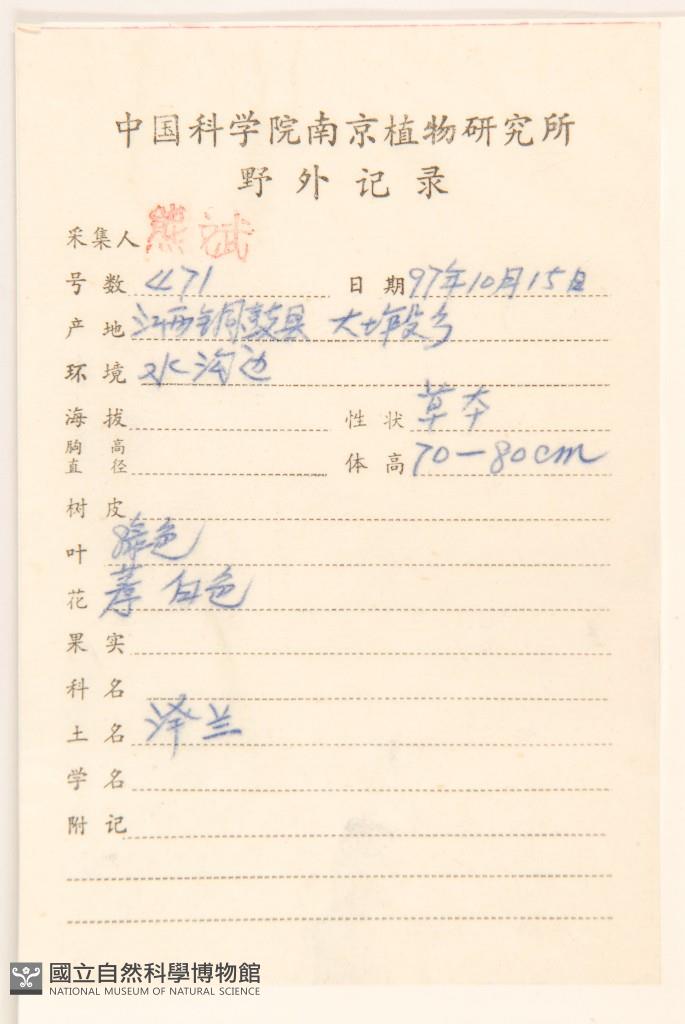 中国科学院南京植物研究所
野外记录
采集人 熊斌
号数 471 日期 97年10月15日
产地 江西铜鼓县 大塅乡
环境 水沟边
海拔 性状 草本
胸高直径 体高 70-80cm
树皮
叶 绿色
花 白色
果实
科名
土名 泽兰
学名
附记
國立自然科學博物館
NATIONAL MUSEUM OF NATURAL SCIENCE